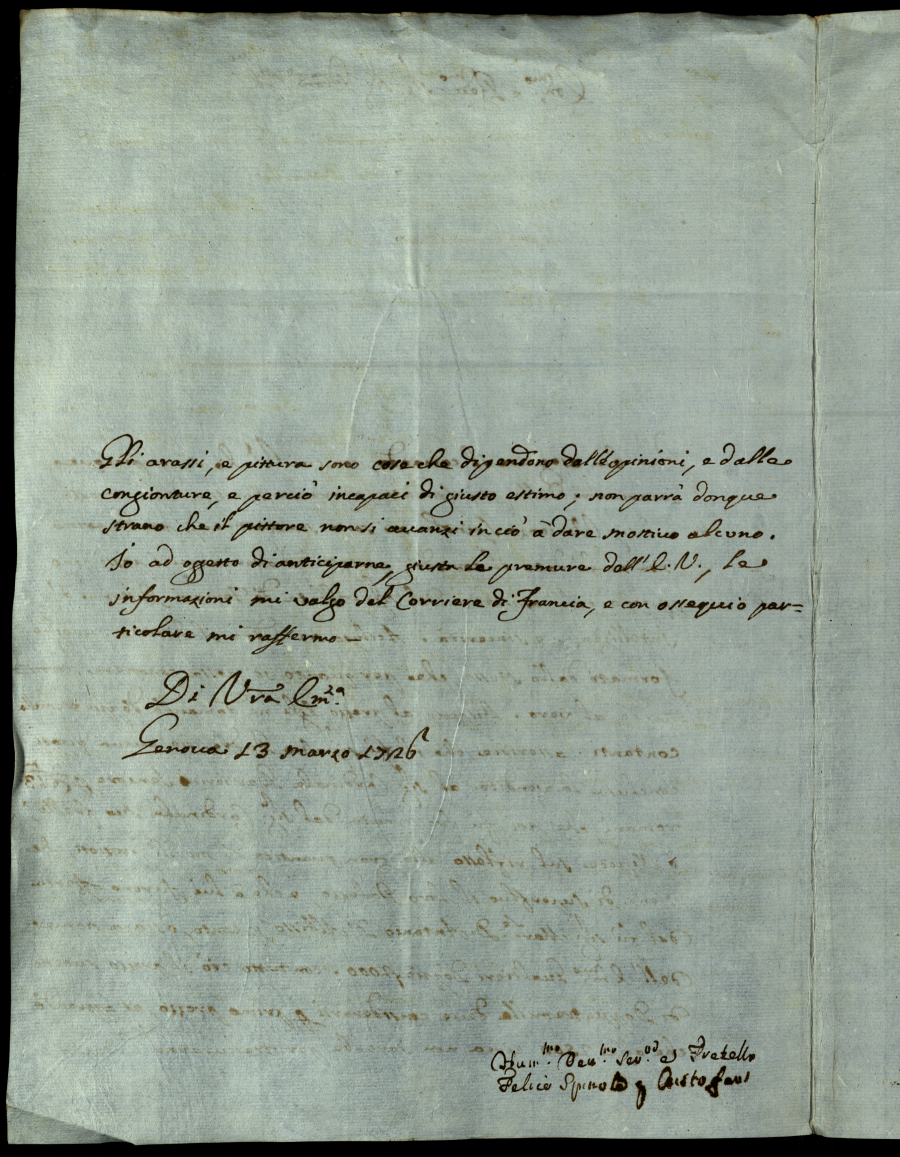 Gli arassi, e pittura sono cose che dipendono dall'opinioni, e dalle
congionture, e perciò incapaci di giusto estimo; non parrà donque
strano che il pittore non si avanzi in ciò à dare mottivo alcuno.
Io ad oggetto di anticiparne, giusta le premure dell' E. V., le
informazioni mi valgo del Corriere di Francia, e con ossequio par=
ticolare mi raffermo –
Di Vra Em.za
Genova 13 marzo 1726
Hum.mo Deu.mo Ser. e Fratello
Felice Spinola q